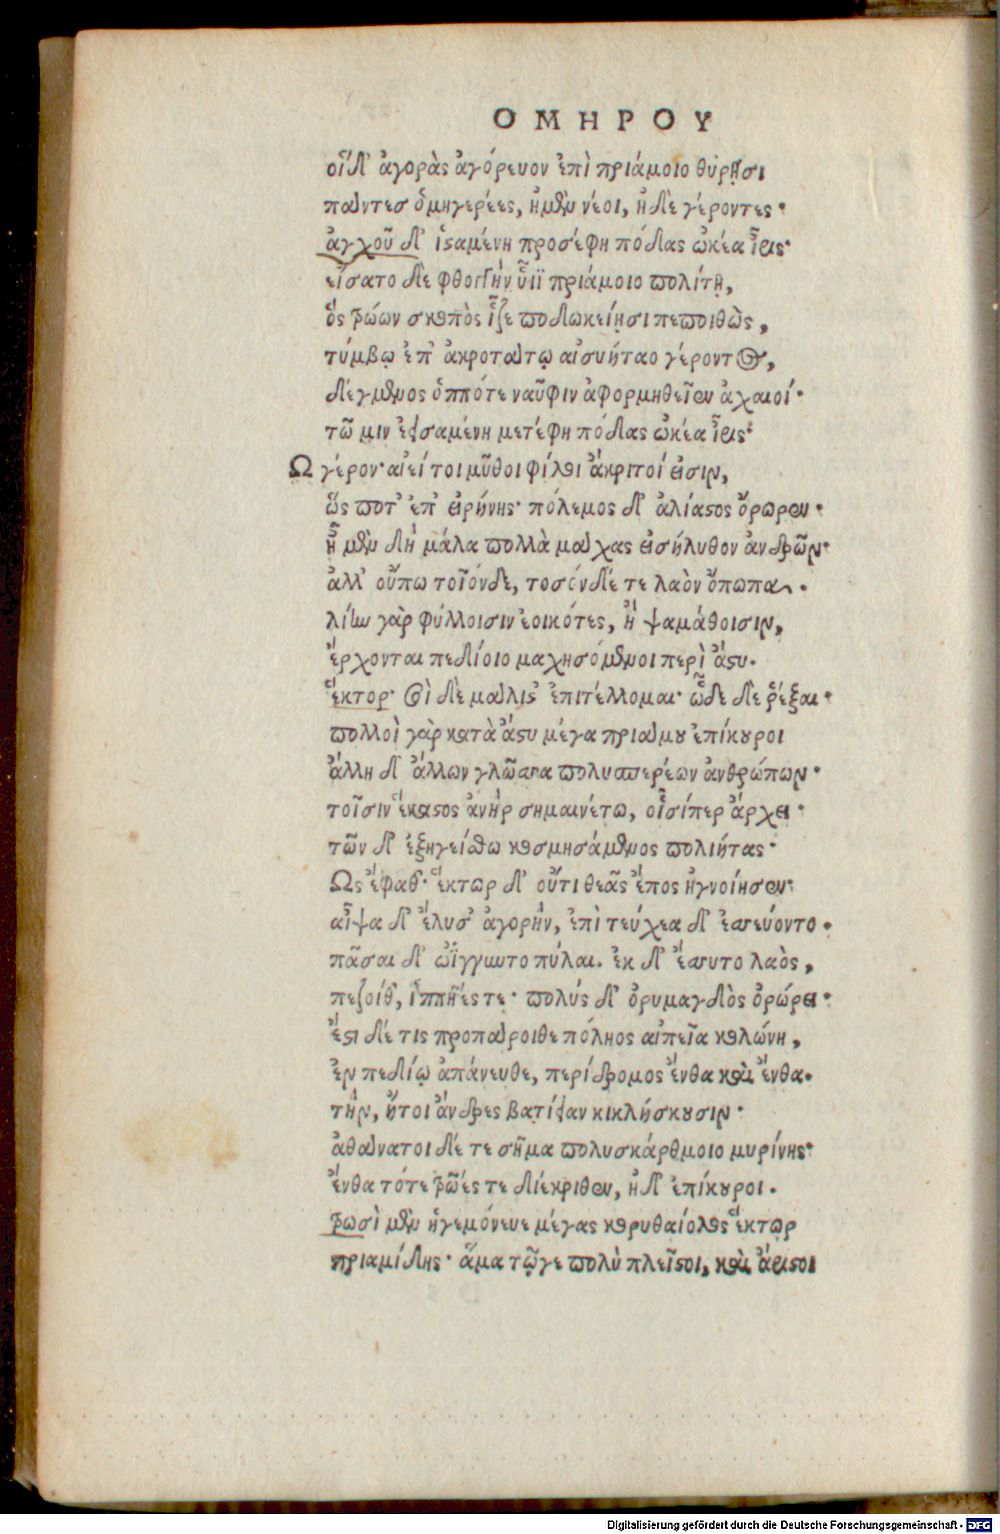 ΟΜΗΡΟΥ
οἵδ' ἀγορὰς ἀγόρευον ἐπὶ πριάμοιο θύρῃσι
πάντεσ ὁμηγερέες, ἠμὲν νέοι, ἠδὲ γέροντες·
ἀγχοῦ δ' ἱσταμένη προσέφη πόδας ὠκέα ἶρις·
εἴσατο δὲ φθογγὴν ὗϊϊ πριάμοιο πολίτῃ,
ὅς τρώων σκοπὸς ἷζε ποδωκείῃσι πεποιθὼς,
τύμβῳ ἐπ' ἀκροτάτῳ αἰσυήταο γέροντος,
δέγμενος ὁππότε ναῦφιν ἀφορμηθεῖεν ἀχαιοί·
τῶ μιν ἐεισαμένη μετέφη πόδας ὠκέα ἶρις·
Ω γέρον· αἰεί τοι μῦθοι φίλοι ἄκριτοί εἰσιν,
ὥς ποτ' ἐπ' εἰρήνης· πόλεμος δ' ἀλίαστος ὄρωρεν·
ἦ μὲν δὴ μάλα πολλὰ μάχας εἰσήλυθον ἀνδρῶν·
ἀλλ' οὔπω τοῖόνδε, τοσόνδέ τε λαὸν ὄπωπα.
λίην γὰρ φύλλοισιν ἐοικότες, ἢ ψαμάθοισιν,
ἔρχονται πεδίοιο μαχησόμενοι περὶ ἄστυ.
ἕκτορ· σοὶ δὲ μάλιστ' ἐπιτέλλομαι· ὧδε δὲ ῥέξαι·
πολλοὶ γὰρ κατὰ ἄστυ μέγα πριάμου ἐπίκουροι
ἄλλη δ' ἄλλων γλῶσσα πολυσπερέων ἀνθρώπων·
τοῖσιν ἕκαστος ἀνὴρ σημαινέτω, οἷσίπερ ἄρχει·
τῶν δ' ἐξηγείσθω κοσμησάμενος πολιήτας·
Ως ἔφαθ'· ἕκτωρ δ' οὔτι θεᾶς ἔπος ἠγνοίησεν·
αἶψα δ' ἔλυσ' ἀγορὴν, ἐπὶ τεύχεα δ' ἐσσεύοντο.
πᾶσαι δ' ὠΐγνυντο πύλαι. ἐκ δ' ἔσσυτο λαὸς,
πεζοίθ', ἱππῆές τε· πολύς δ' ὀρυμαγδὸς ὀρώρει·
ἔστι δέ τις προπάροιθε πόληος αἰπεῖα κολώνη,
ἐν πεδίῳ ἀπάνευθε, περίδρομος ἔνθα καὶ ἔνθα.
τὴν, ἤτοι ἄνδρες βατίειαν κικλήσκουσιν·
ἀθάνατοι δέ τε σῆμα πολυσκάρθμοιο μυρίνης·
ἔνθα τότε τρῶές τε διέκριθεν, ἠδ' ἐπίκουροι.
τρωσὶ μὲν ἡγεμόνευε μέγας κορυθαίολος ἕκτωρ
πριαμίδης· ἅμα τῷγε πολὺ πλεῖστοι, καὶ ἄριστοι
Digitalisierung gefördert durch die Deutsche Forschungsgemeinschaft - DFG